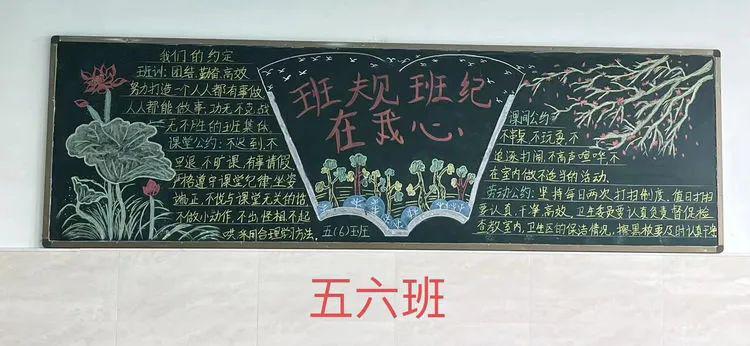 我们的约定
班训:团结,勤奋,高效
努力打造一个人人都有事做
人人都能做事,功无不克战
无不胜的班集体
课堂公约:不迟到,不
早退,不旷课,有事请假
严格遵守课堂纪律,坐姿
端正,不说与课堂无关的话
不做小动作,不出怪相,不起
哄,采用合理学习方法.
班规班纪
在我心
五(6)班
课间公约:
不串桌,不玩耍,不
追逐打闹,不高声喧哗,不
在室内做不适当的活动.
劳动公约:坚持每日两次打扫制度,值日打扫
要认真,干净,高效,卫生委员要认真负责督促检
各教室内,卫生区的保洁情况,擦黑板要及时认真干净
五六班